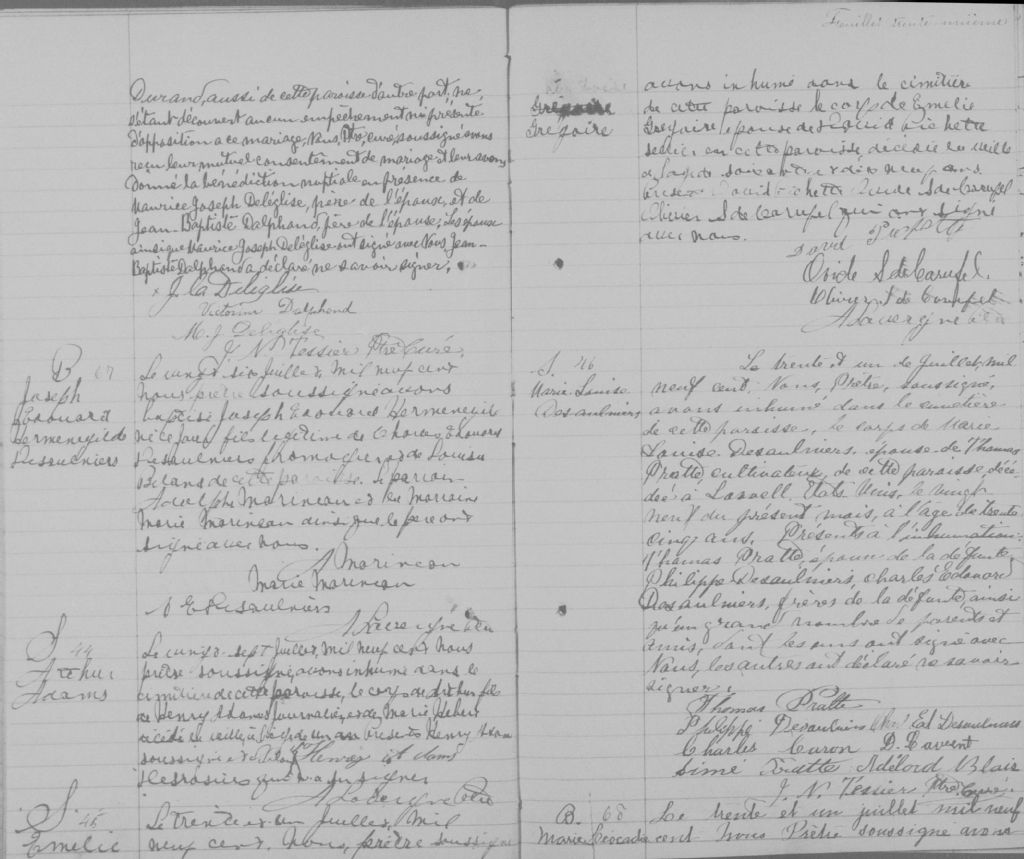 Durand, aussi de cette paroisse d'autre part; ne
s'étant découvert aucun empêchement ni présenté
d'opposition à ce mariage, Nous, Ptre, curé soussigné avons
reçu leur mutuel consentement de mariage et leur avons
donné la bénédiction nuptiale en présence de
Maurice Joseph Deléglise, père de l'époux, et de
Jean-Baptiste Dalphond, père de l'épouse; Les époux
ainsi que Maurice Joseph Deléglise ont signé avec Nous, Jean-
Baptiste Dalphond a déclaré ne savoir signer.
Deléglise
Victorine Dalphond
M. J. Deléglise
J. N. Tessier Ptre Curé.
B 67
Joseph
Edouard
Hermenegilde
Desaulniers
Le vingt six Juillet, Mil neuf cent
nous prêtre soussigné avons
baptisé Joseph Edouard Hermenegild
né ce jour fils légitime de Charles Edouard
Desaulniers fromager et de Louisa
de cette paroisse. Le parrain
Adolphe Marineau et la Marraine
Marie Marineau ainsi que le père ont
signé avec nous.
A Marineau
Marie Marineau
E Desaulniers
A Lavergne Ptre
S 44
Arthur
Adams
Le vingt-sept Juillet, Mil neuf cent Nous
prêtre soussigné, avons inhumé dans le
cimetière de cette paroisse, le corps de Arthur fils
de Henry Adams Journalier, et de Marie Hebert
décédé la veille, à l'age de un an Présents Henry Adams
soussigné
qui n'a su signer
A Lavergne Ptre
S 45
Emelie
Le trente et un Juillet, Mil
neuf cent. Nous, prêtre soussigné
Feuillet trente-unième
Grégoire
Grégoire
avons inhumé dans le cimetière
de cette paroisse le corps de Emelie
Grégoire épouse de David Pichette
décédée la veille
à l'age de soixante et dix neuf ans
Présents David Pichette Ovide S de Carufel
Olivier S de Carufel qui ont signé
avec nous.
David
Ovide S de Carufel.
Olivier S de Carufel
A Lavergne Ptre
S. 46
Marie Louise
Desaulniers
Le trente et un de Juillet, mil
neuf cent. Nous, Prêtre, soussigné,
avons inhumé dans le cimetière
de cette paroisse, le corps de Marie
Louise Desaulniers, épouse de Thomas
Pratte, cultivateur, de cette paroisse, décé-
dée à Lowell, Etats Unis, le vingt
neuf du présent mois, à l'âge de trente
cinq ans. Présents à l'inhumation:
Thomas Pratte, époux de la défunte,
Philippe Desaulniers, Charles Edouard
Desaulniers, frères de la défunte, ainsi
qu'un grand nombre de parents et
amis, dont les uns ont signé avec
Nous, les autres ont déclaré ne savoir
signer.
Thomas Pratte
Philippe Desaulniers Chs Ed Desaulniers
Charles Caron D. Lavent
Simé Pratte Adélord Blais
J. N. Tessier Ptre Curé.
B. 68
Marie Léocadie
Le trente et un juillet mil neuf
cent Nous Prêtre soussigné avons